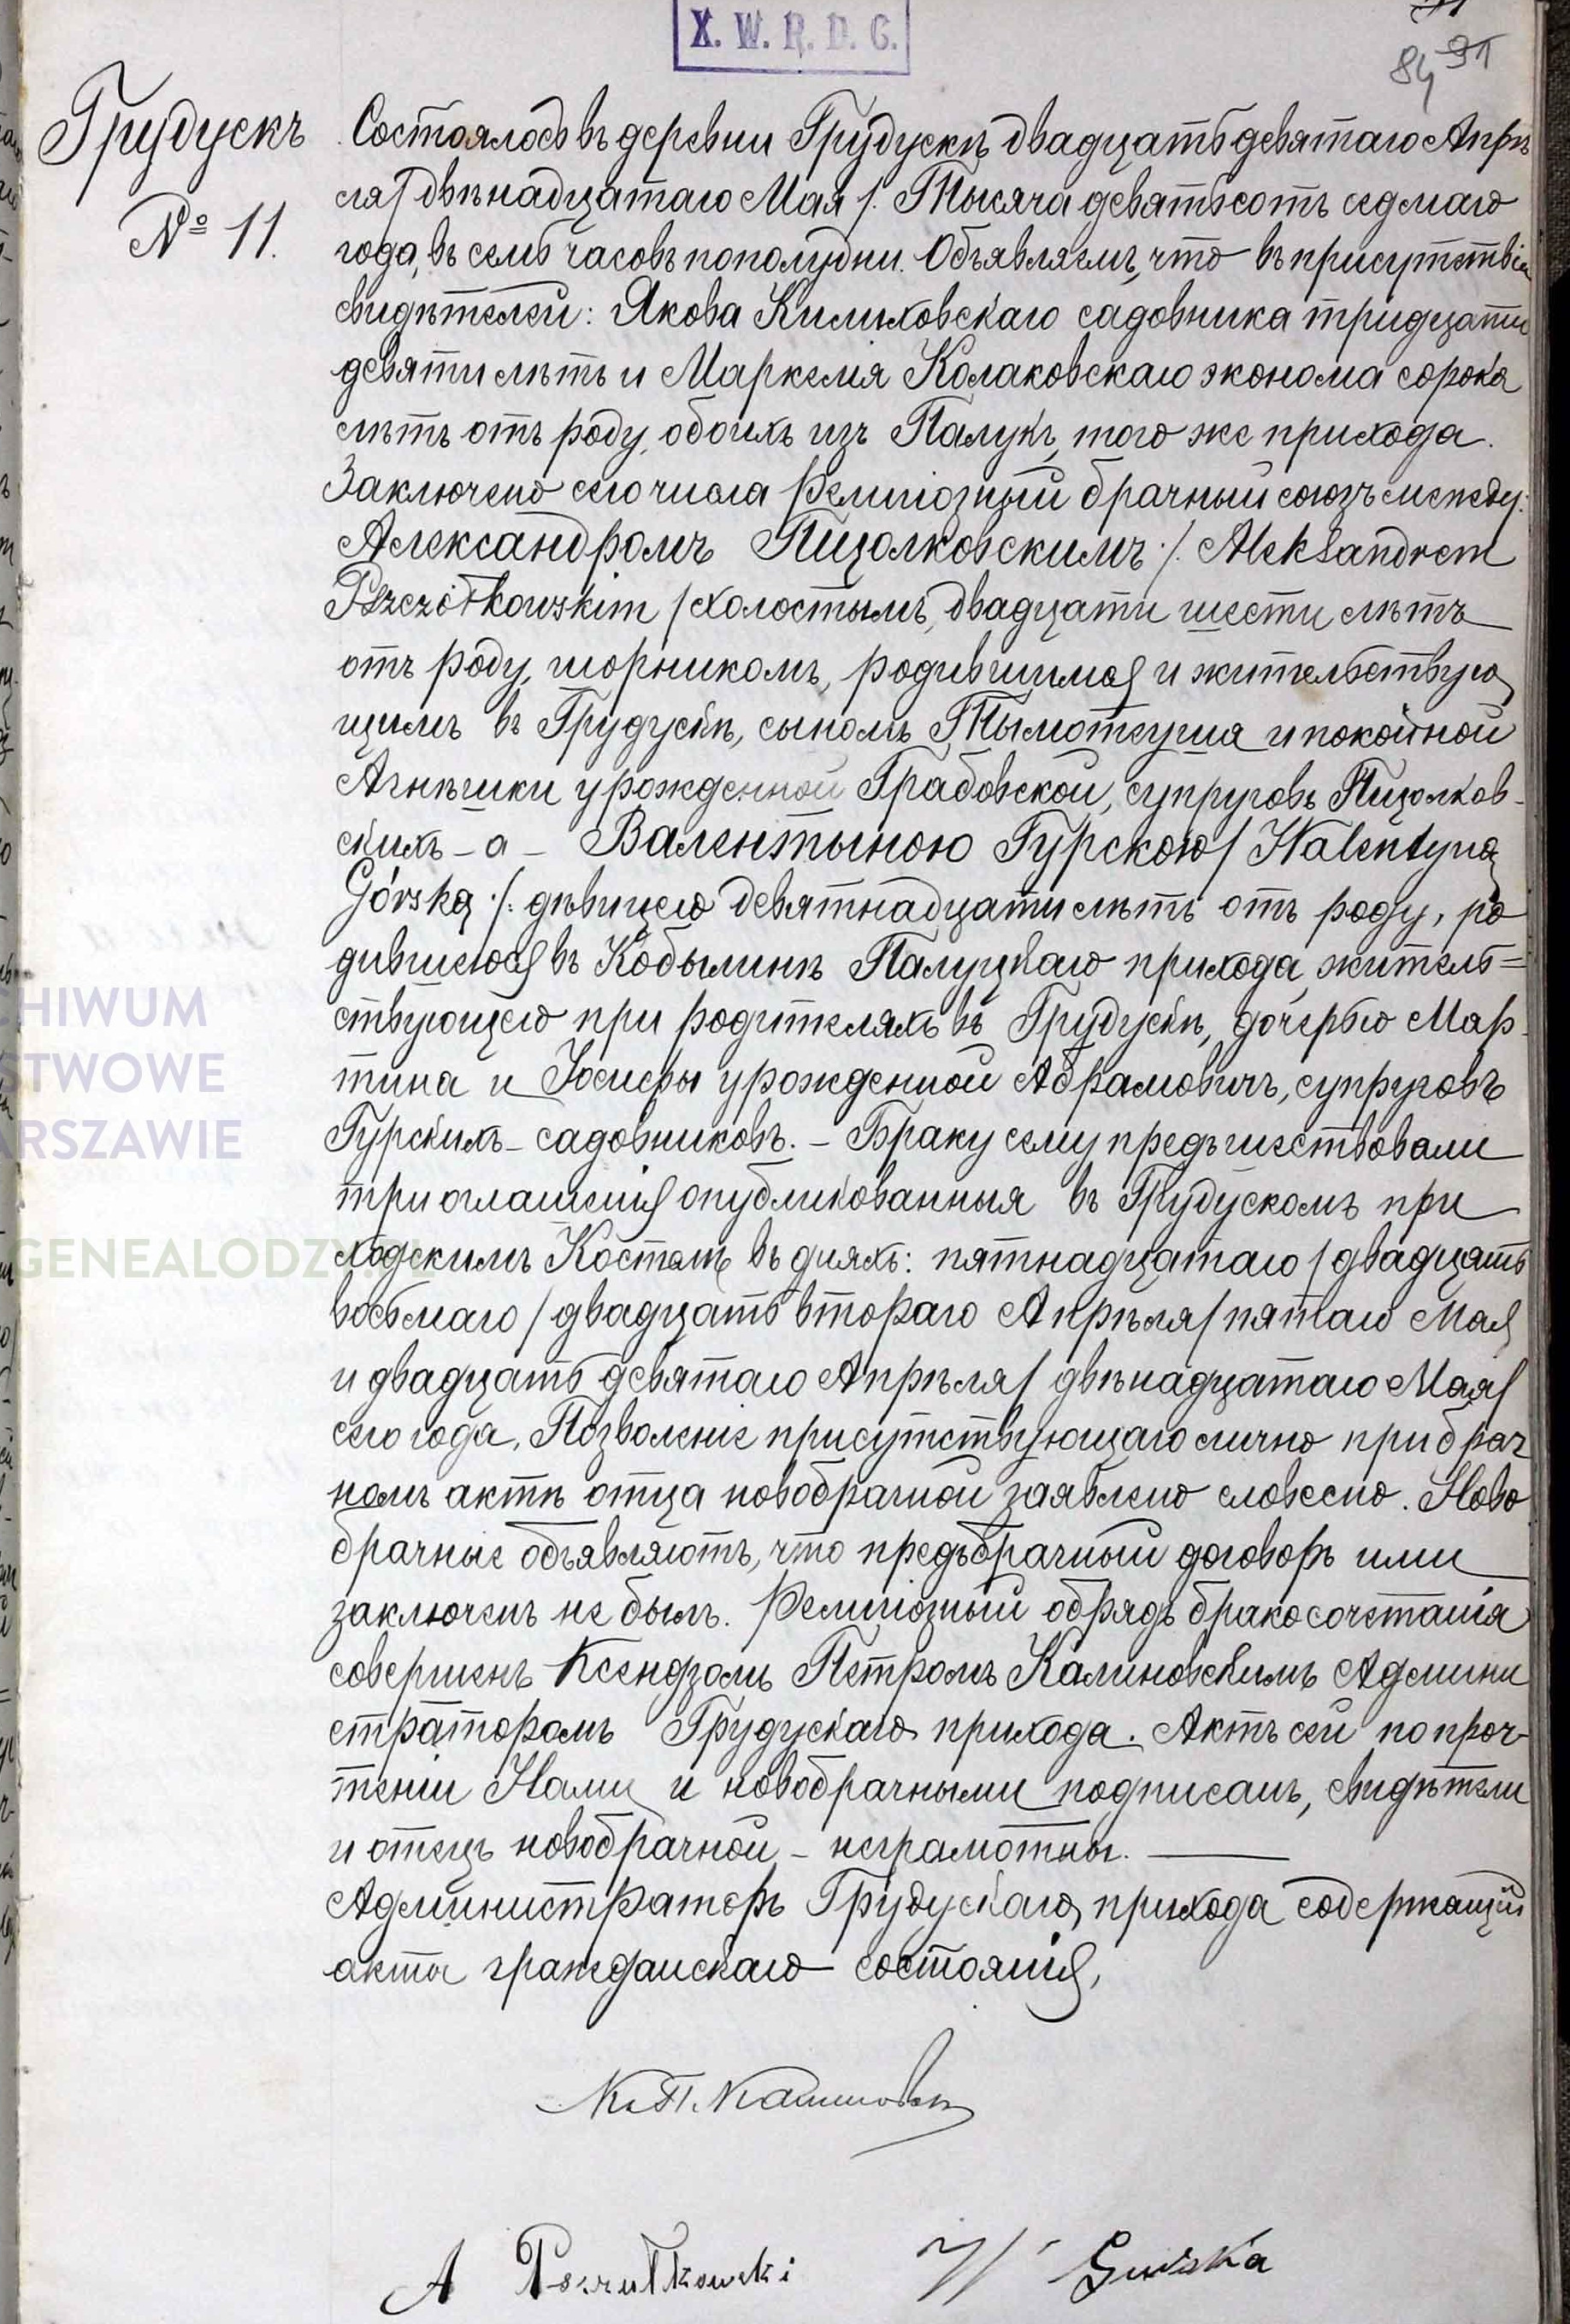 X. W. R. D. C.
84 91
Грудускъ
№ 11.
Состоялось въ деревни Грудускѣ двадцать девятаго Апрѣ
ля / двѣнадцатаго Мая /. Тысяча девятьсотъ седмаго
года, въ семь часовъ пополудни. Объявляемъ, что въ присутствіи
свидѣтелей: Якова Климковскаго садовника тридцати
девяти лѣтъ и Маркелія Колаковскаго эконома сорока
лѣтъ отъ роду, обоихъ изъ Палукъ, того же прихода.
Заключено сего числа религіозный брачный союзъ между:
Александромъ Пщолковскимъ /. Aleksandrem
Pszczółkowskim / холостымъ, двадцати шести лѣтъ
отъ роду, шорникомъ, родившимся и жительствую
щимъ въ Грудускѣ, сыномъ Тымотеуша и покойной
Агнѣшки урожденной Грабовской, супруговъ Пщолков-
скихъ - а - Валентыною Гурскою / Walentyną
Górską /. дѣвицею девятнадцати лѣтъ отъ роду, ро
дившеюся въ Кобылинѣ Палуцкаго прихода, житель=
ствующею при родителяхъ въ Грудускѣ, дочерью Мар-
тина и Юсифы урожденной Абрамовичъ, супруговъ
Гурскихъ - садовниковъ. - Браку сему предшествовали
три оглашенія опубликованныя въ Грудускомъ при
ходскимъ Костелѣ въ дняхъ: пятнадцатаго / двадцать
восьмаго / двадцать втораго Апрѣля / пятаго Мая
и двадцать девятаго Апрѣля / двѣнадцатаго Мая /
сего года. Позволеніе присутствующаго лично при брач
номъ актѣ отца новобрачной заявлено словесно. Ново
брачные объявляютъ, что предъбрачный договоръ ими
заключенъ не былъ. Религіозный обрядъ бракосочетанія
совершенъ Ксендзомъ Петромъ Калиновскимъ Админи
страторомъ Грудускаго прихода. Актъ сей по проч-
теніи Нами и новобрачными подписанъ, свидѣтели
и отецъ новобрачной - неграмотны.
Администраторъ Грудускаго прихода содержащій
акты гражданскаго состоянія,
Кс. П. Калиновск
A Pszczułkowski W Gurska
ARCHIWUM
PAŃSTWOWE
WARSZAWIE
GENEALODZY.PL